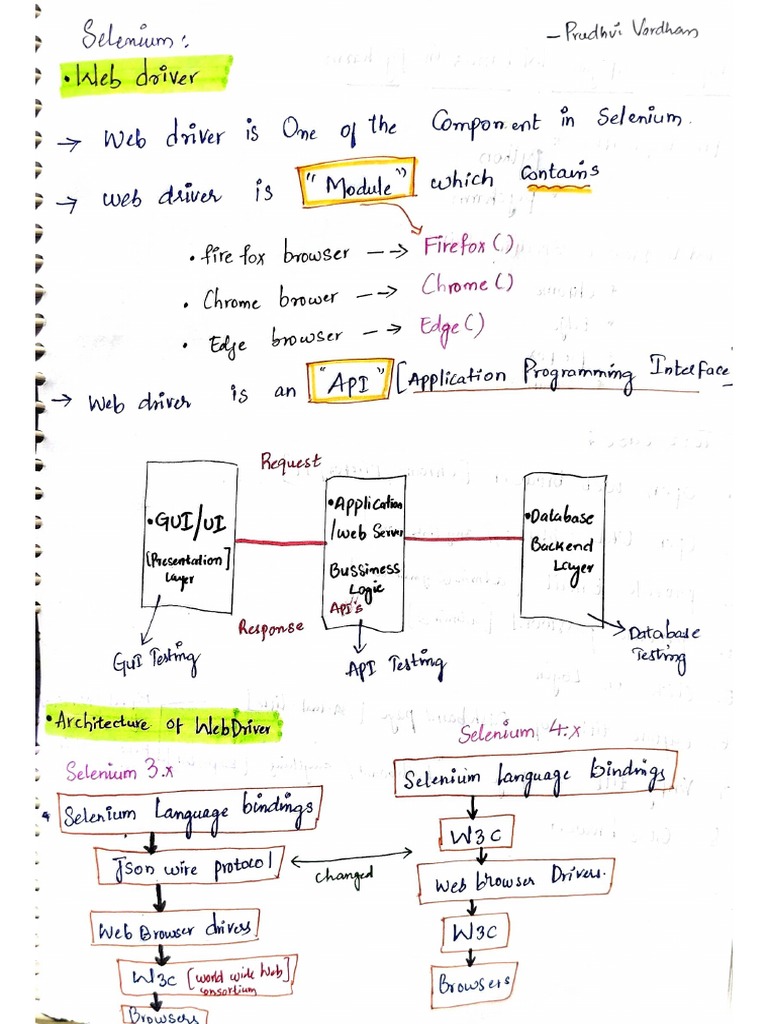 Selenium:
-Prudhvi Vardhan
• Web driver
→ Web driver is One of the Component in Selenium.
→ web driver is "Module" which contains
• fire fox browser --→ Firefox()
• Chrome brower --→ Chrome()
• Edge browser --→ Edge()
→ Web driver is an "API" [Application Programming Interface
Request
• GUI/UI
[Presentation]
Layer
Response
GUI Testing
• Application
/web Server
Bussiness
Logic
API's
API Testing
• Database
Backend
Layer
Database
Testing
• Architecture of WebDriver
Selenium 3.x
Selenium Language bindings
Json wire protocol
Web Browser drivers
W3C [world wide Web]
consortium
Browsers
changed
Selenium 4.x
Selenium language bindings
W3C
Web browser Drivers.
W3C
Browsers